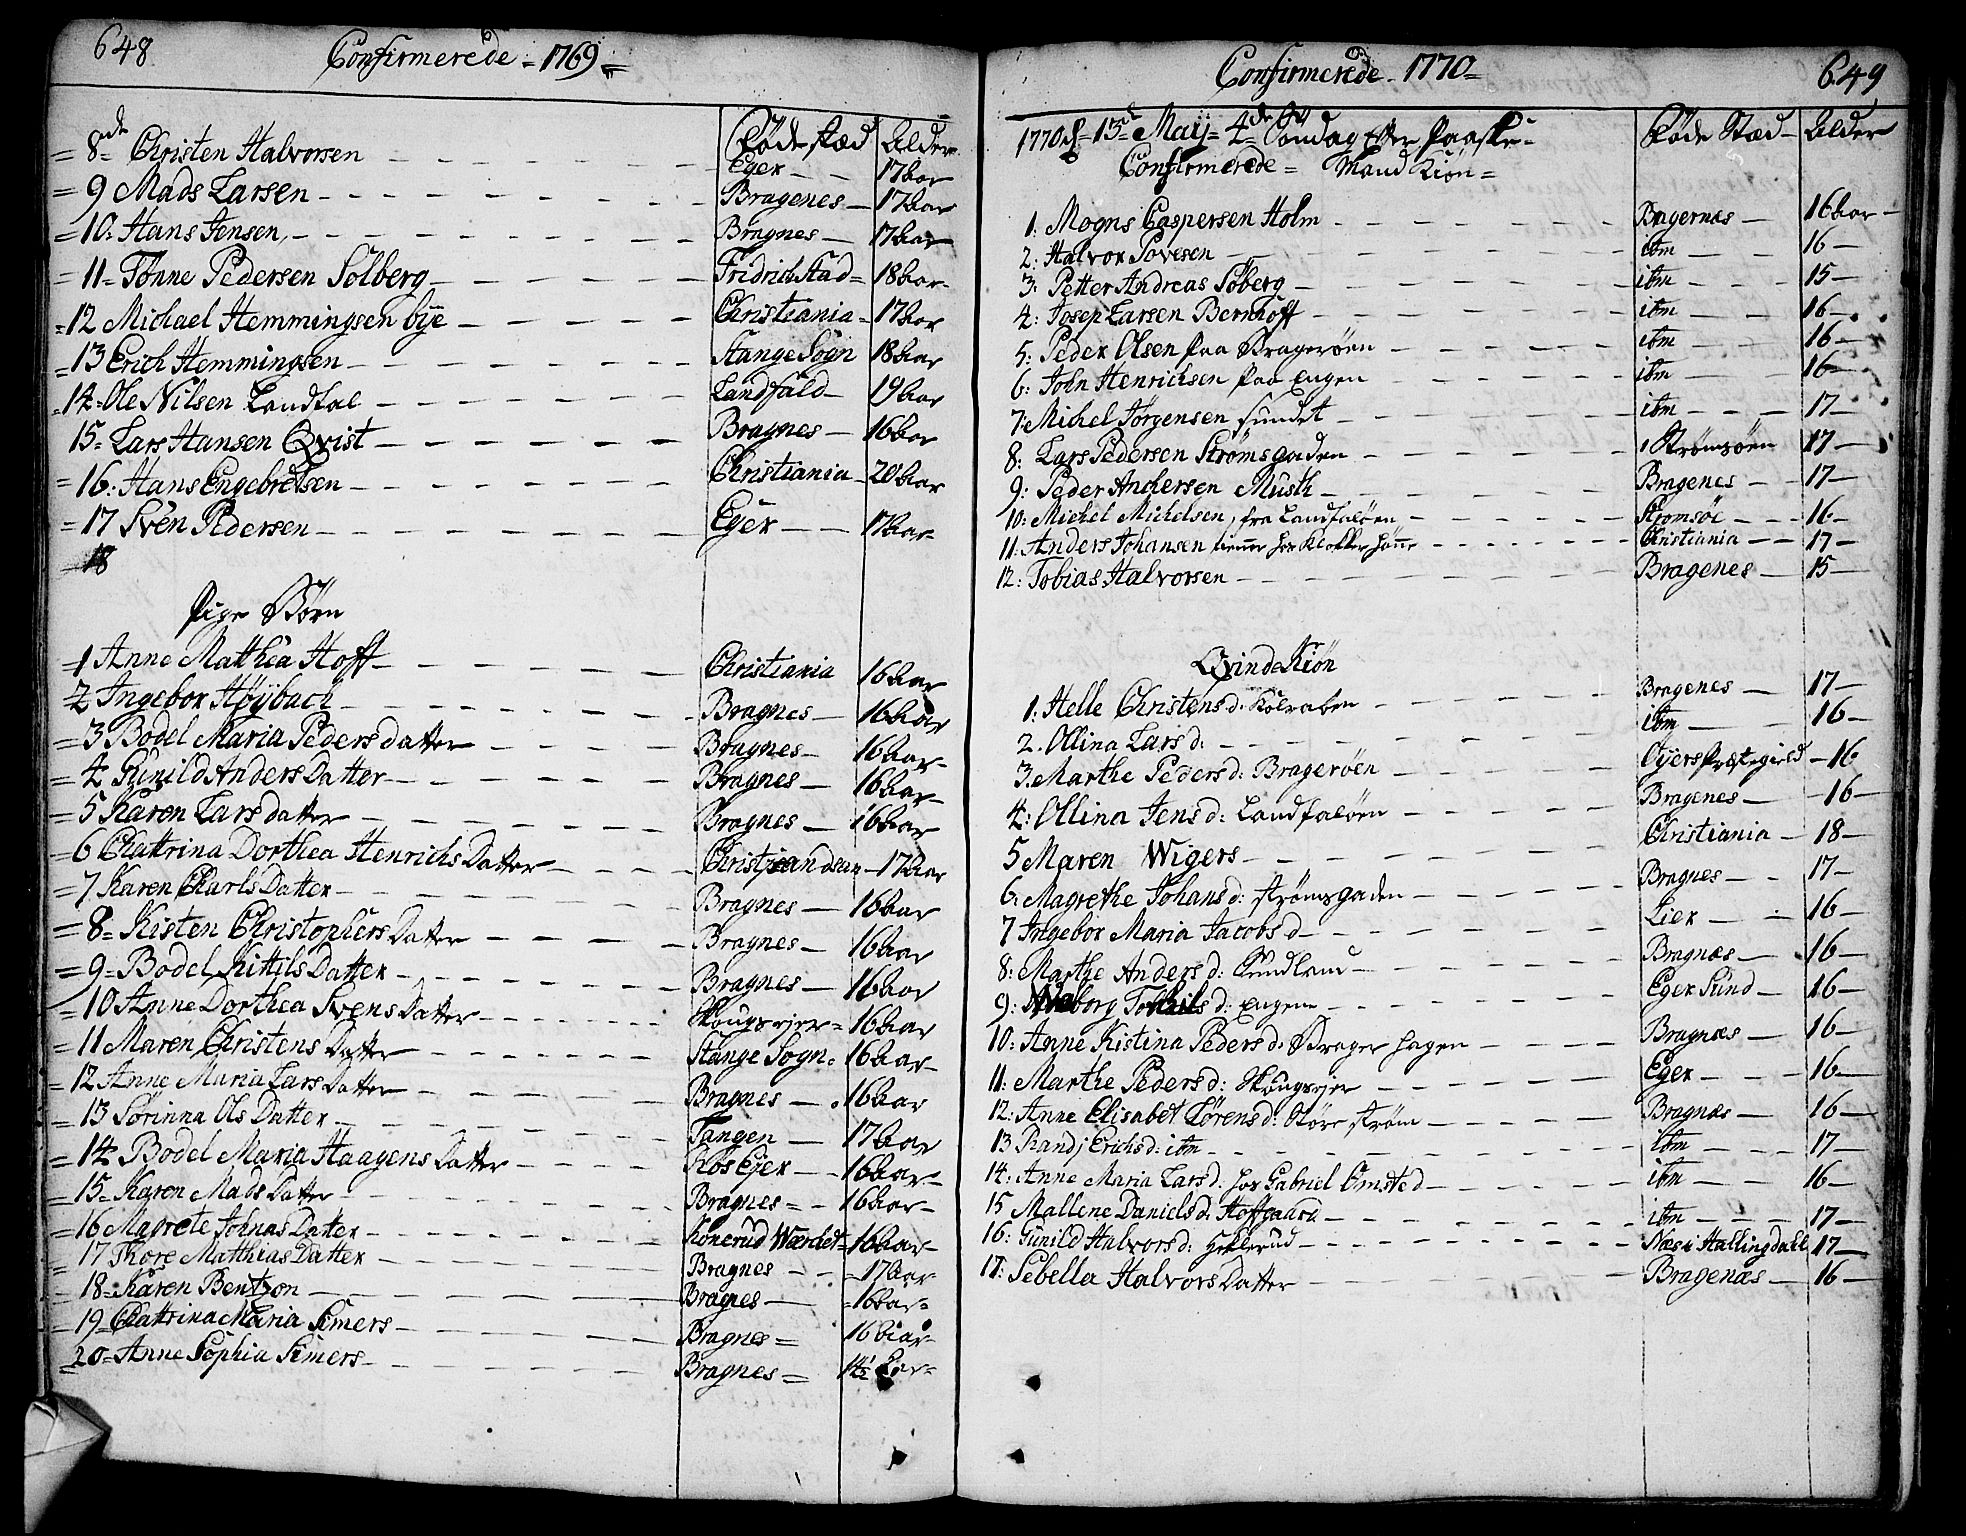 648 Confirmerede = 1769 =
Føde stæd Alder
= 8de = Christen Halvorsen Eger 17 aar
= 9 Mads Larsen Bragenes 17 aar
= 10: Hans Jensen Bragnes 17 aar
= 11 = Tønne Pedersen Solberg Fridrichstad = 18 aar
= 12 Michael Hemmingsen bye Christiania = 17 aar
= 13 Erich Hemmingsen Stange Sogn 18 aar
= 14 = Ole Nilsen Landfal Landfald 19 aar
15 = Lars Hansen Qvist Bragnes 16 aar
= 16: Hans Engebretsen Christiania 20 aar
= 17 Svën Pedersen Eger 17 aar
18
Pige Børn
= 1 Anne Mathëa Hoff Christiania 16 aar
2 Ingebor Høybach Bragnes 16 aar
= 3 Bodel Maria Peders datter Bragnes 16 aar
= 4 Gunild Anders Datter Bragnes 16 aar
= 5 Karen Lars datter Bragnes 16 aar
= 6 Chattrina Dorthea Henrichs Datter Christiandsan 17 aar
= 7 Karen Charls Datter Bragnes 16 aar
= 8 = Kisten Christophers Datter Bragnes 16 aar
= 9 = Bodel Kittils Datter Bragnes 16 aar
= 10 Anne Dorthea Svens Datter Skougsejer = 16 aar
= 11 Maren Christens Datter Stange Sogn = 16 aar
= 12 Anne Maria Lars Datter Bragnes 16 aar
= 13 Sørinna Ols Datter Tangen 17 aar
= 14 Bodel Maria Haagens Datter Kos Ejer 16 aar
= 15 = Karen Mads Datter Bragnes = 16 aar
= 16 Magrete Johnas Datter Konerud Wærdet = 16 aar
= 17 Thore Matthias Datter Bragnes 17 aar
= 18 = Karen Bentzon Bragnes = 16 aar =
= 19 = Chattrina Maria Simers Bragnes = 16 aar
= 20 = Anne Sophia Simers Bragnes = 14½ aar =
Confirmerede 1770 = 649
1770 d = 13de Maij = 4de Søndag Efter Paaske = Føde Stæd Alder
Confirmerede = Mand Kiøn =
1: Mogns Caspersen Holm Bragernæs 16 aar
2: Halvor Povesen ibm 16
3: Petter Andreas Søberg ibm 15
4: Josep Larsen Bernhoff ibm 16
5: Peder Olsen paa Bragerøen ibm 16
6: John Henrichsen paa Engen ibm 16
7: Michel Jørgensen Sundet ibm 17
8: Lars Pedersen Strømsgaden Strømsøen 17
9: Peder Andersen Musth Bragenes 17
10: Michel Michelsen, fra Landfaløen Stromsöe 16
11: Anders Johansen tiener hos Klokker Christiania 17
12: Tobias Halvorsen Bragenes 15
Qvinde Kiøn
1: Helle Christens d: Kolraben Bragenes 17
2. Ollina Lars d: ibm 16
3. Marthe Peders d: Bragerøen Oyers Præstegield 16
4: Ollina Jens d: Landfaløen Bragenes 16
5 Maren Wigers Christiania 18
6: Magrethe Johans d: strømsgaden Bragnes 17
7 Ingebor Maria Jacobs d Lier 16
8: Marthe Anders d: Bragnæs 16
9: d: engene Eger Sund 16
10: Anne Kistina Peders d: Brager hagen Bragnæs 16
11: Marthe Peders d: Skougsejer Eger 16
12: Anne Elisabet Sörens d: Store strøm Bragnæs 16
13 Randj Erichs d: ibm ibm 17
14: Anne Maria Lars d: hos Gabriel Omsted ibm 16
15 Mallene Daniels d: Hoffgaard ibm 17
16: Gunild Halvors d: Næs i Hallingdahl 17
17: Sebella Halvors Datter Bragenæs 16